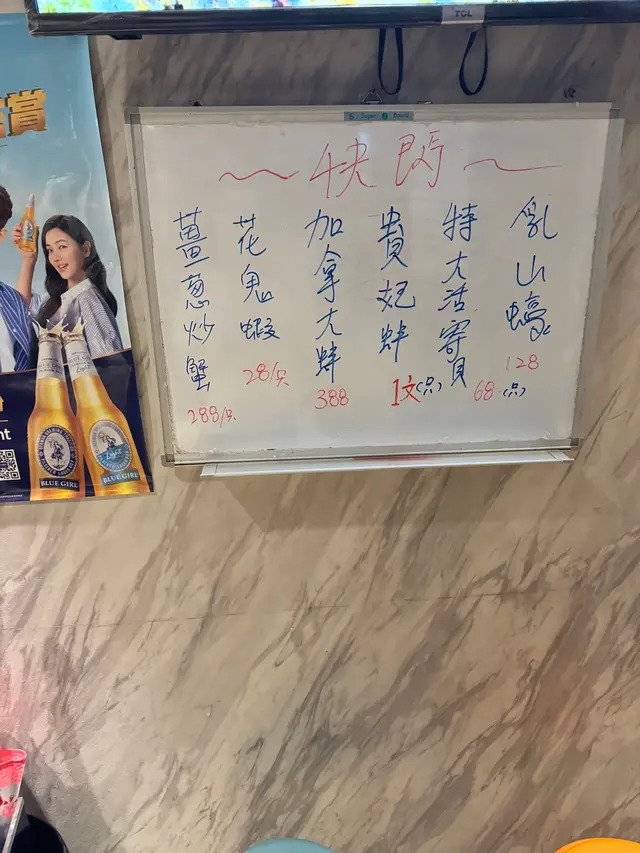 TCL
Super Board
～快閃～
乳山蠔
128
特大活寄貝
68(只)
貴妃蚌
1文(只)
加拿大蚌
388
花鬼蝦
28/只
薑蔥炒蟹
288/只
賞
BLUE GIRL
BLUE GIRL
nt